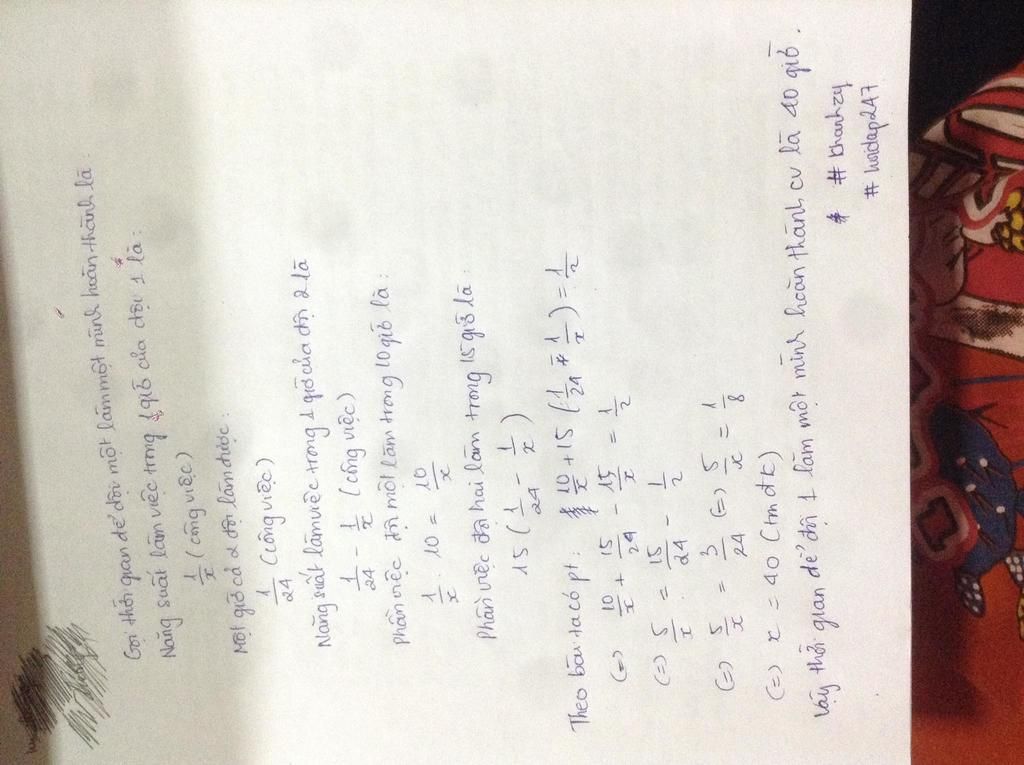 Gọi thời gian để đội một làm một mình hoàn thành là:
Năng suất làm việc trong 1 giờ của đội 1 là:
1/x (công việc)
Một giờ cả 2 đội làm được:
1/24 (công việc)
Năng suất làm việc trong 1 giờ của đội 2 là
1/24 - 1/x (công việc)
Phần việc đội một làm trong 10 giờ là:
1/x . 10 = 10/x
Phần việc đội hai làm trong 15 giờ là:
15 (1/24 - 1/x)
Theo bài ta có pt: 10/x + 15 (1/24 - 1/x) = 1/2
(=) 10/x + 15/24 - 15/x = 1/2
(=) 5/x = 15/24 - 1/2
(=) 5/x = 3/24 (=) 5/x = 1/8
(=) x = 40 (tmđk)
Vậy thời gian để đội 1 làm một mình hoàn thành cv là 40 giờ.
# khanhzy
# hoidap247